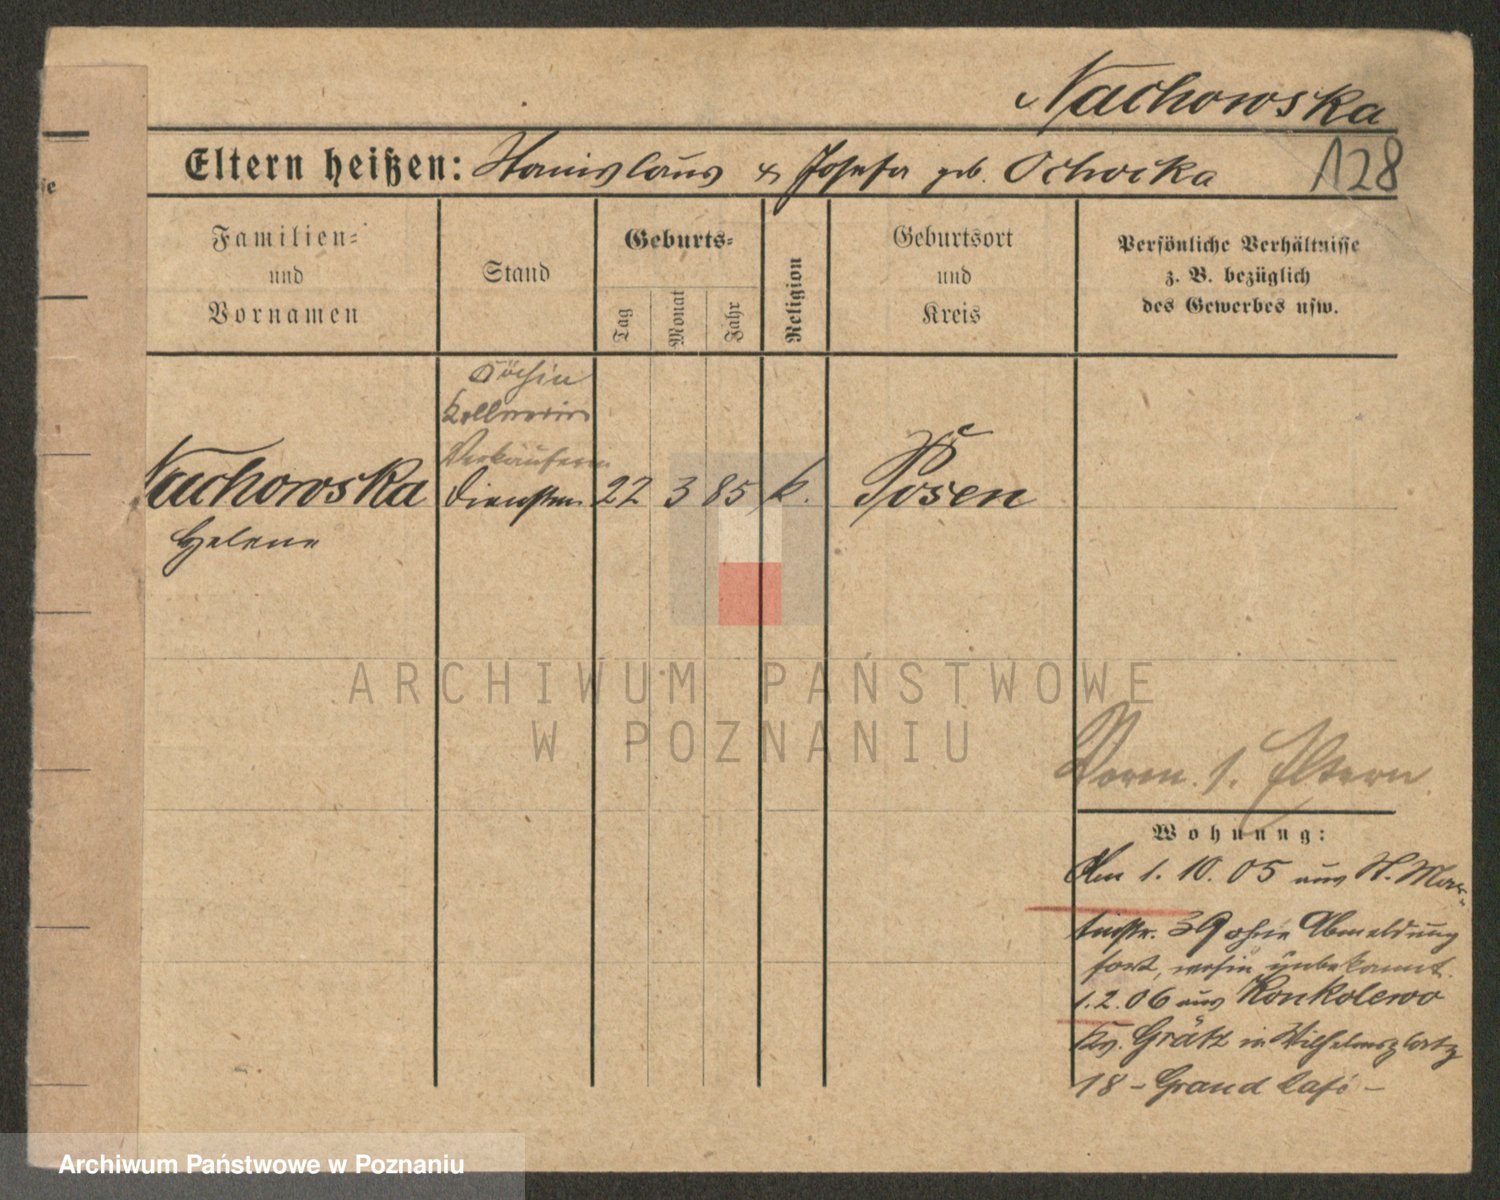 Nachowska
Eltern heißen: Stanislaus & Josefa geb. Ochocka
128
Familien-
und
Vornamen
Stand
Geburts-
Tag
Monat
Jahr
Religion
Geburtsort
und
Kreis
Persönliche Verhältnisse
z. B. bezüglich
des Gewerbes usw.
Köchin
Kellnerin
Verkäuferin
Nachowska
Dienstm. 22 3 85 k. Posen
Helene
ARCHIWUM PAŃSTWOWE
W POZNANIU
Vorm. s. Eltern
Wohnung:
Am 1. 10. 05 aus St. Mar-
tinstr. 39 ohne Abmeldung
fort, wohin unbekannt.
1. 2. 06 aus Konkolewo
Kr. Grätz in Wilhelmsplatz
18 - Grand Café -
Archiwum Państwowe w Poznaniu